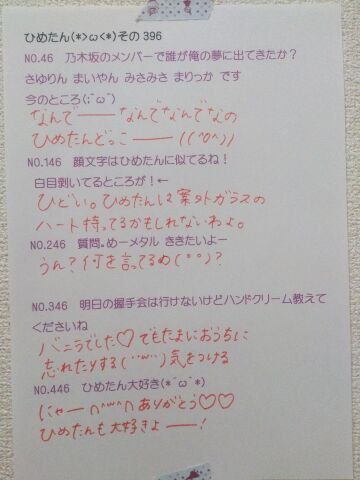 ひめたん(*>ω<*)その396
NO.46 乃木坂のメンバーで誰が俺の夢に出てきたか?
さゆりん まいやん みさみさ まりっか です
今のところ(;´ω`)
なんで――なんでなんでなの
ひめたんどっこ――((^o^))
NO.146 顔文字はひめたんに似てるね!
白目剥いてるところが!←
ひどい。ひめたんは案外ガラスの
ハート持ってるかもしれないわよ。
NO.246 質問。めーメタル ききたいよー
うん?何を言ってるめ(°°)?
NO.346 明日の握手会は行けないけどハンドクリーム教えて
くださいね
バニラでした♡でもたまにおうちに
忘れたりする(¨w¨)気をつける
NO.446 ひめたん大好き(*´ω`*)
にゃー∩^w^∩ありがとう♡♡
ひめたんも大好きよ――!